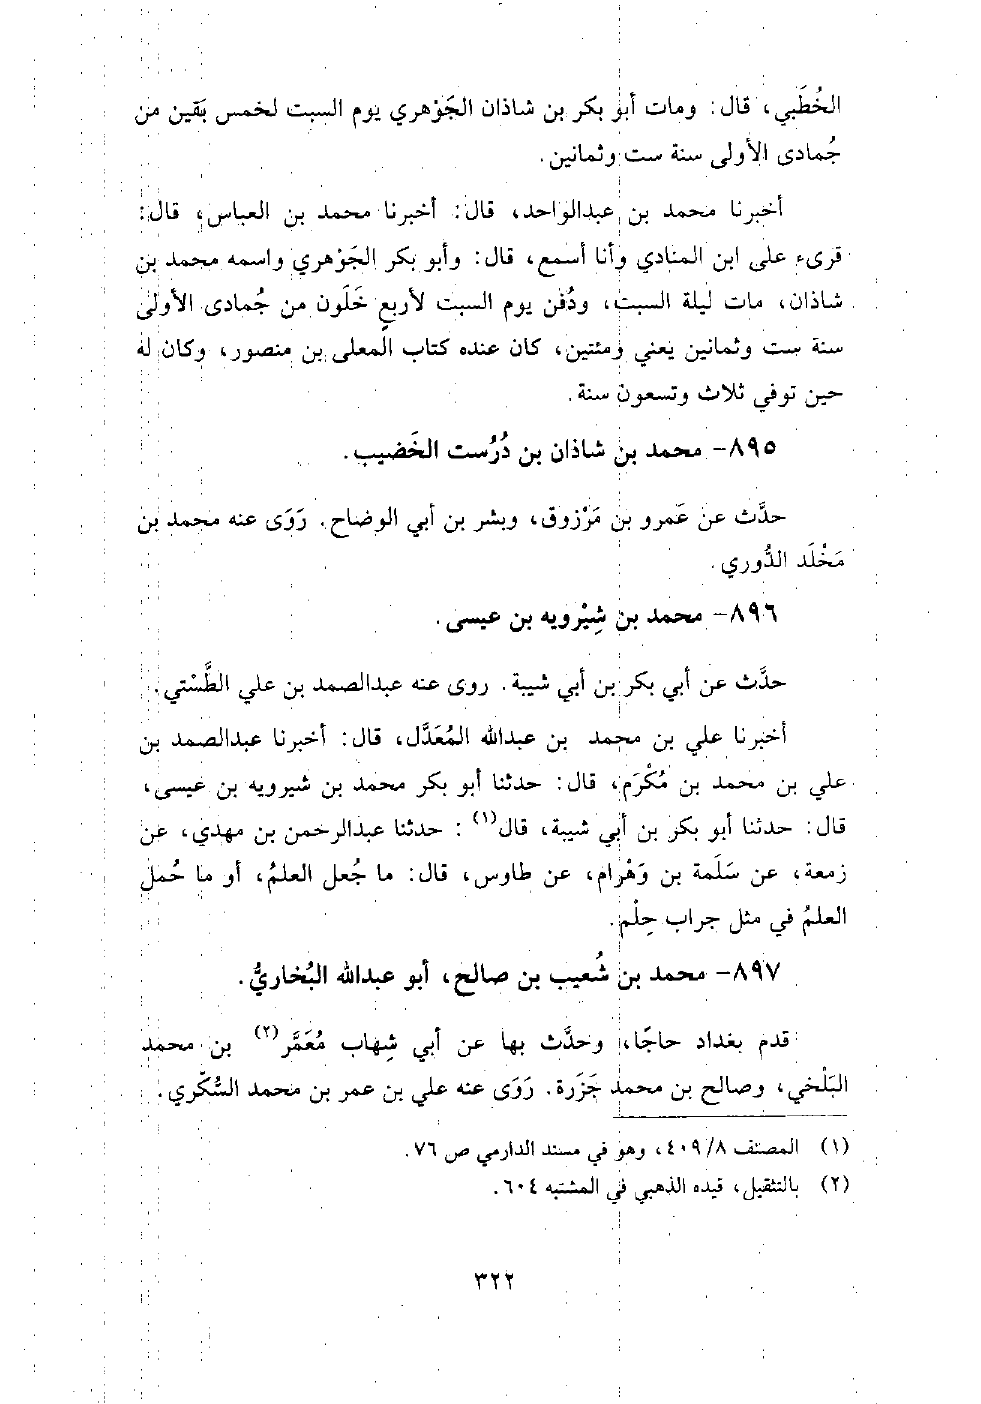 الخُطَبي، قال: ومات أبو بكر بن شاذان الجَوْهري يوم السبت لخمس بَقين من
جُمادى الأولى سنة ست وثمانين.
أخبرنا محمد بن عبدالواحد، قال: أخبرنا محمد بن العباس، قال:
قرىء على ابن المنادي وأنا أسمع، قال: وأبو بكر الجَوْهري واسمه محمد بن
شاذان، مات ليلة السبت، ودُفن يوم السبت لأربعٍ خَلَون من جُمادى الأولى
سنة ست وثمانين يعني ومئتين، كان عنده كتاب المعلى بن منصور، وكان له
حين توفي ثلاث وتسعون سنة.
٨٩٥- محمد بن شاذان بن دُرُست الخَضيب.
حدَّث عن عَمرو بن مَرْزوق، وبشر بن أبي الوضاح. رَوَى عنه محمد بن
مَخْلَد الدُّوري.
٨٩٦- محمد بن شِيْرويه بن عيسى.
حدَّث عن أبي بكر بن أبي شيبة. روى عنه عبدالصمد بن علي الطَّسْتي.
أخبرنا علي بن محمد بن عبدالله المُعَدَّل، قال: أخبرنا عبدالصمد بن
علي بن محمد بن مُكْرَم، قال: حدثنا أبو بكر محمد بن شيرويه بن عيسى،
قال: حدثنا أبو بكر بن أبي شيبة، قال(١): حدثنا عبدالرحمن بن مهدي، عن
زمعة، عن سَلَمة بن وَهْرام، عن طاوس، قال: ما جُعل العلمُ، أو ما حُمل
العلمُ في مثل جراب حِلْم.
٨٩٧- محمد بن شُعيب بن صالح، أبو عبدالله البُخاريُّ.
قدم بغداد حاجًا، وحدَّث بها عن أبي شِهاب مُعَمَّر(٢) بن محمد
البَلْخي، وصالح بن محمد جَزَرة. رَوَى عنه علي بن عمر بن محمد السُّكّري.
(١) المصنف ٨/ ٤٠٩، وهو في مسند الدارمي ص ٧٦.
(٢) بالتثقيل، قيده الذهبي في المشتبه ٦٠٤.
٣٢٢